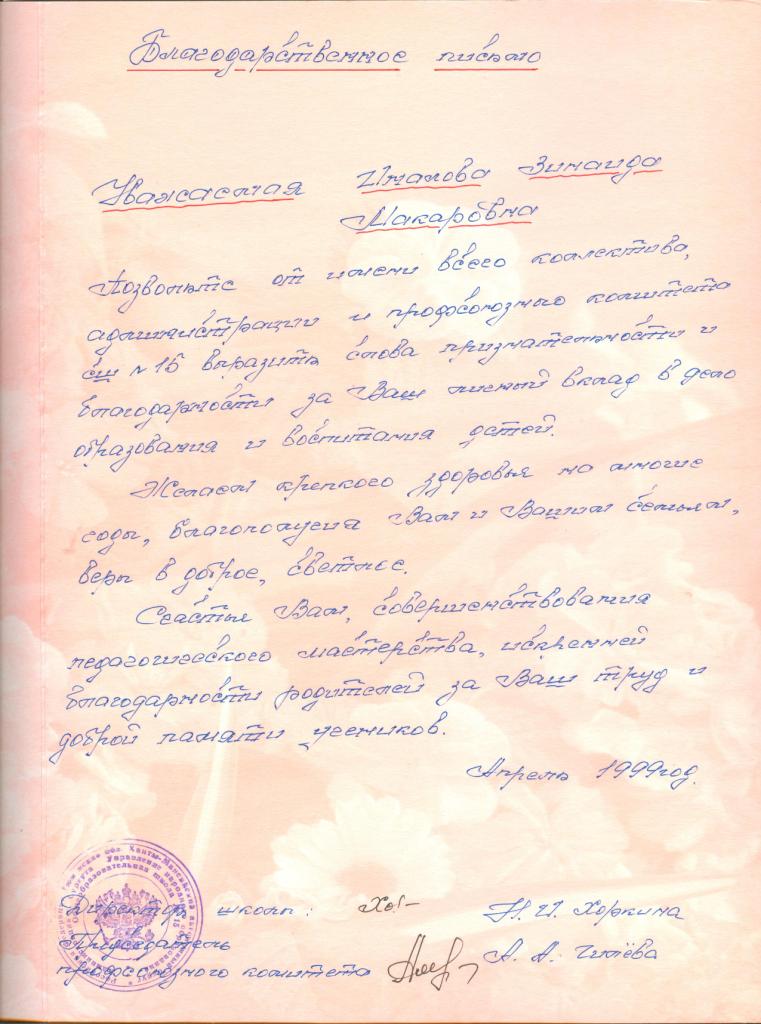 Благодарственное письмо
Уважаемая Имамова Зинаида
Макаровна
Позвольте от имени всего коллектива,
администрации и профсоюзного комитета
сш № 15 выразить слова признательности и
благодарности за Ваш личный вклад в дело
образования и воспитания детей.
Желаем крепкого здоровья на многие
годы, благополучия Вам и Вашим семьям,
веры в доброе, светлое.
Счастья Вам, совершенствования
педагогического мастерства, искренней
благодарности родителей за Ваш труд и
доброй памяти учеников.
Апрель 1999год.
Директор школы: Н. И. Хоркина
Председатель
профсоюзного комитета А. А.